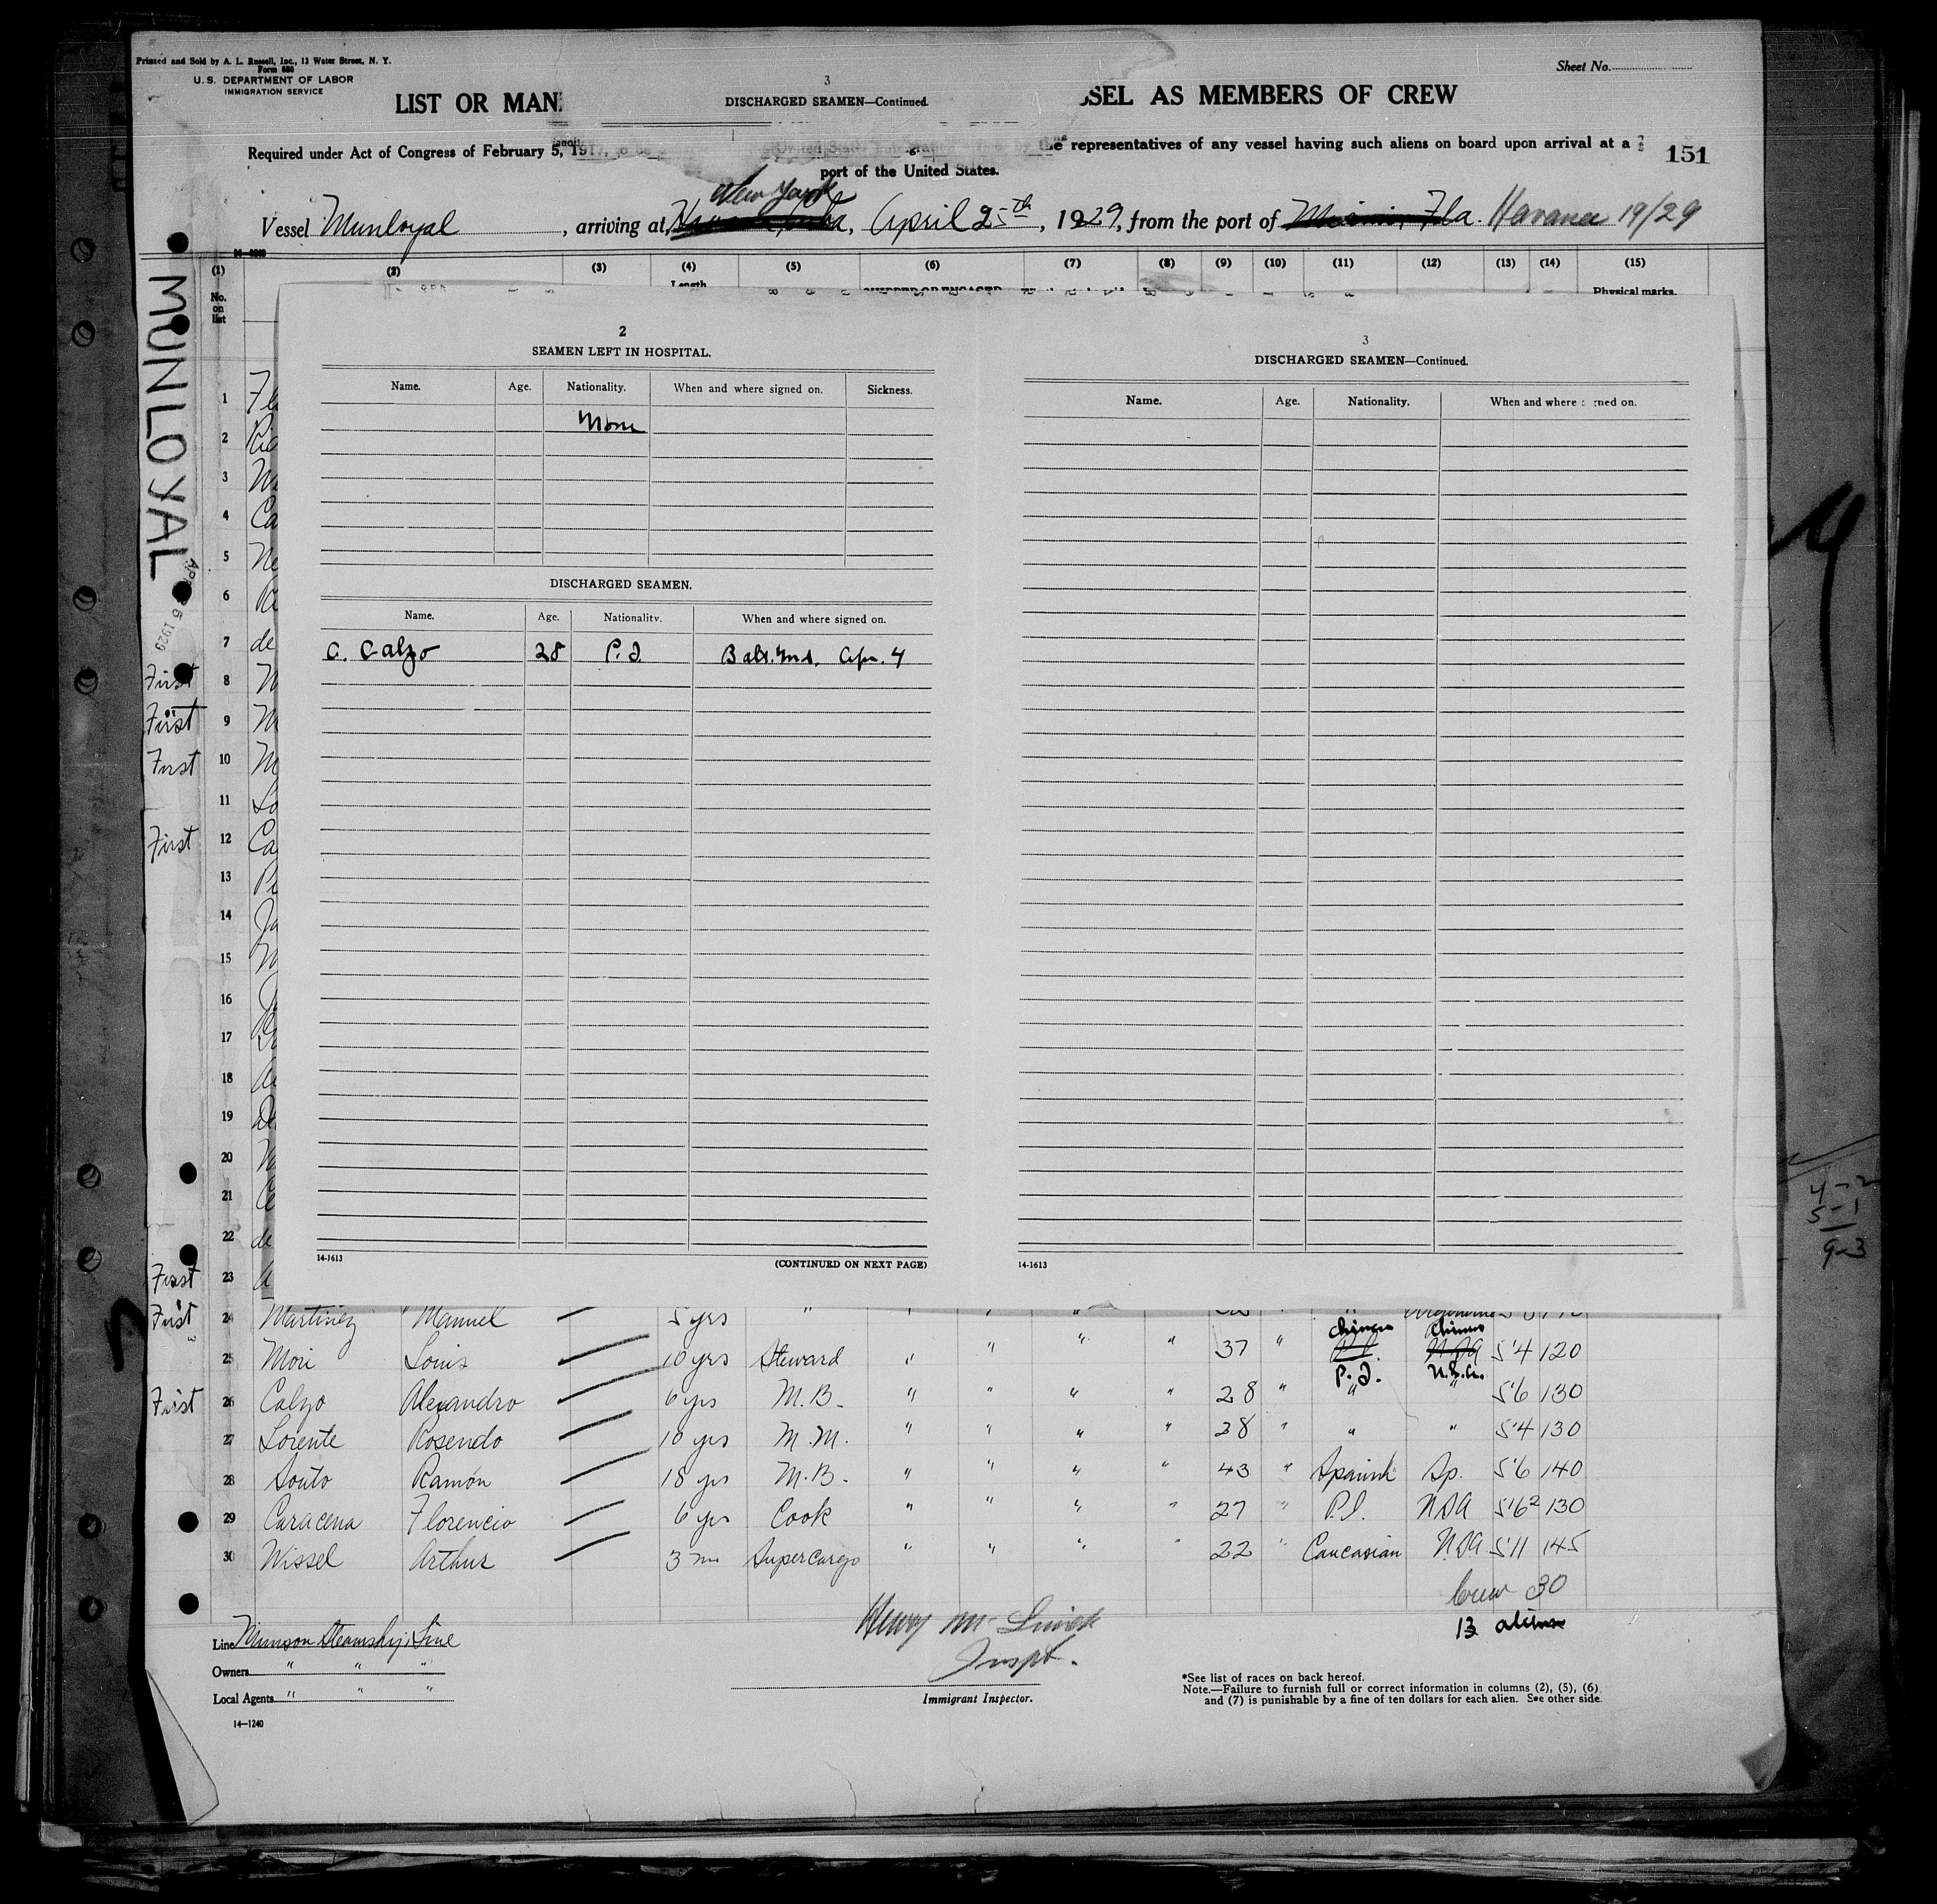 Printed and Sold by A. L. Russell, Inc., 13 Water Street, N. Y.
Form 680
U. S. DEPARTMENT OF LABOR
IMMIGRATION SERVICE
Sheet No.
LIST OR MAN
3
DISCHARGED SEAMEN—Continued.
SSEL AS MEMBERS OF CREW
Required under Act of Congress of February 5, 1917, to be representatives of any vessel having such aliens on board upon arrival at a
port of the United States.
151
New York
Vessel Munloyal, arriving at Havana, Cuba, April 25th, 1929, from the port of Miami, Fla. Havana 19/29
(1) (2) (3) (4) (5) (6) (7) (8) (9) (10) (11) (12) (13) (14) (15)
No. on list
Length
SHIPPED OR ENGAGED
Physical marks,
MUNLOYAL
2
SEAMEN LEFT IN HOSPITAL.
Name. Age. Nationality. When and where signed on. Sickness.
None
DISCHARGED SEAMEN.
Name. Age. Nationality. When and where signed on.
C. Calzo 28 P.I. Balt. Md. Apr. 4
14-1613
(CONTINUED ON NEXT PAGE)
3
DISCHARGED SEAMEN—Continued.
Name. Age. Nationality. When and where signed on.
14-1613
1
2
3
4
5
6
7 de
First 8
First 9
First 10
11
First 12
13
14
15
16
17
18
19
20
21
22 de
First 23
First 24 Martinez Manuel 5 yrs "
Chinese Chinese
25 Mori Louis 10 yrs Steward " " " " 37 " 5'4 120
P.I. U.S.A.
First 26 Calzo Alexandro 6 yrs M.B. " " " " 28 " " " 5'6 130
27 Lorente Rosendo 10 yrs M.M. " " " " 28 " " " 5'4 130
28 Souto Ramon 18 yrs M.B. " " " " 43 " Spanish Sp. 5'6 140
29 Caracena Florencio 6 yrs Cook " " " " 27 " P.I. USA 5'6 2 130
30 Wissel Arthur 3 mo Supercargo " " " " 22 " Caucasian USA 5'11 145
Crew 30
13 aliens
Line Munson Steamship Line
Owners " " "
Local Agents " " "
14—1240
Inspt.
Immigrant Inspector.
*See list of races on back hereof.
Note.—Failure to furnish full or correct information in columns (2), (5), (6)
and (7) is punishable by a fine of ten dollars for each alien. See other side.
4-2
5-1
9-3